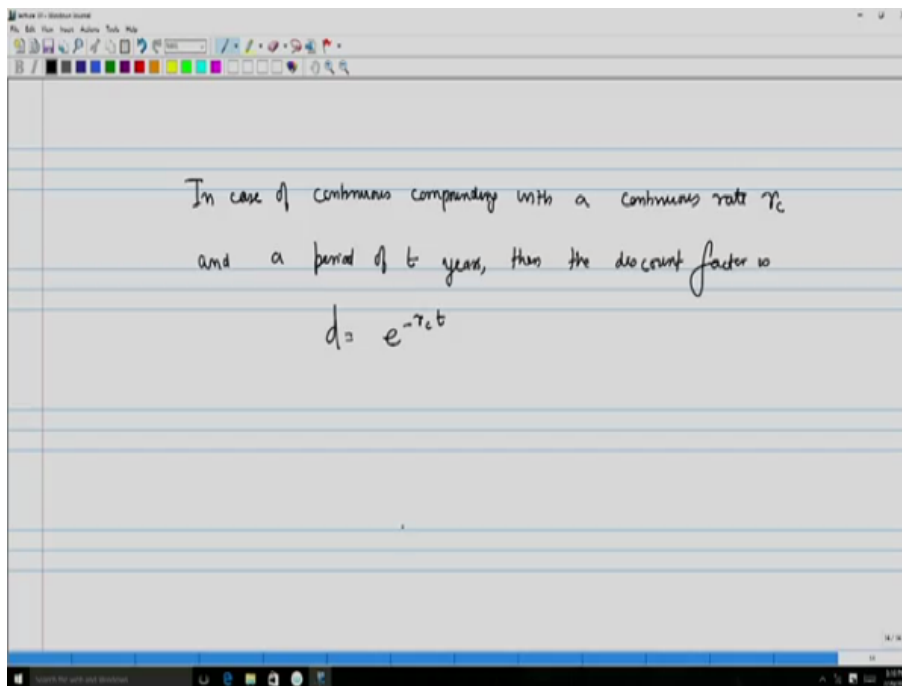 File Edit View Insert Actions Tools Help
B I
In case of continuous compounding with a continuous rate r_c
and a period of t years, then the discount factor is
d = e^{-r_c t}
Search the web and Windows